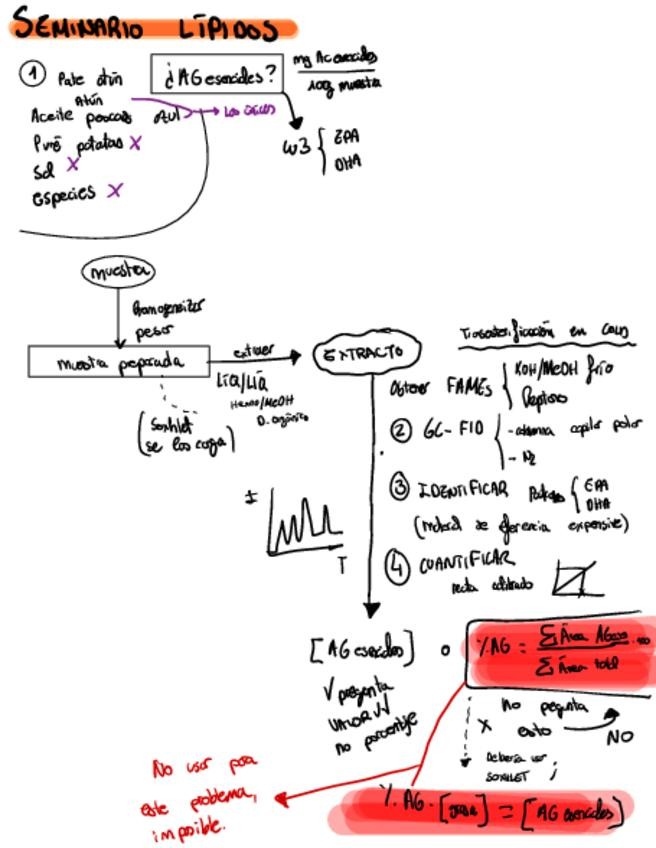 SEMINARIO LÍPIDOS
① Pate atún
¿AG esenciales?
mg AG esenciales
100g muestra
Atún
Aceite pescado Azul
Puré patatas X
Sal X
especies X
ω3 { EPA
DHA
muestra
Homogeneizar
pesar
muestra preparada
extraer
LÍQ/LÍQ
Hexano/MeOH
D. orgánico
(Soxhlet
se los carga)
EXTRACTO
Transesterificación en
Obtener FAMEs { KOH/MeOH frío
Heptano
② GC-FID { - columna capilar polar
- N2
③ IDENTIFICAR Patrones { EPA
DHA
(Material de referencia expensive)
④ CUANTIFICAR
recta calibrado
I
T
[AG esenciales] o %AG = Σ Área AG
Σ Área total
√ pregunta
VALOR √√
no porcentaje
No pregunta
X esto
NO
Debería usar
SOXHLET ;
No usar para
este problema,
imposible.
%AG · [ ] = [AG esenciales]